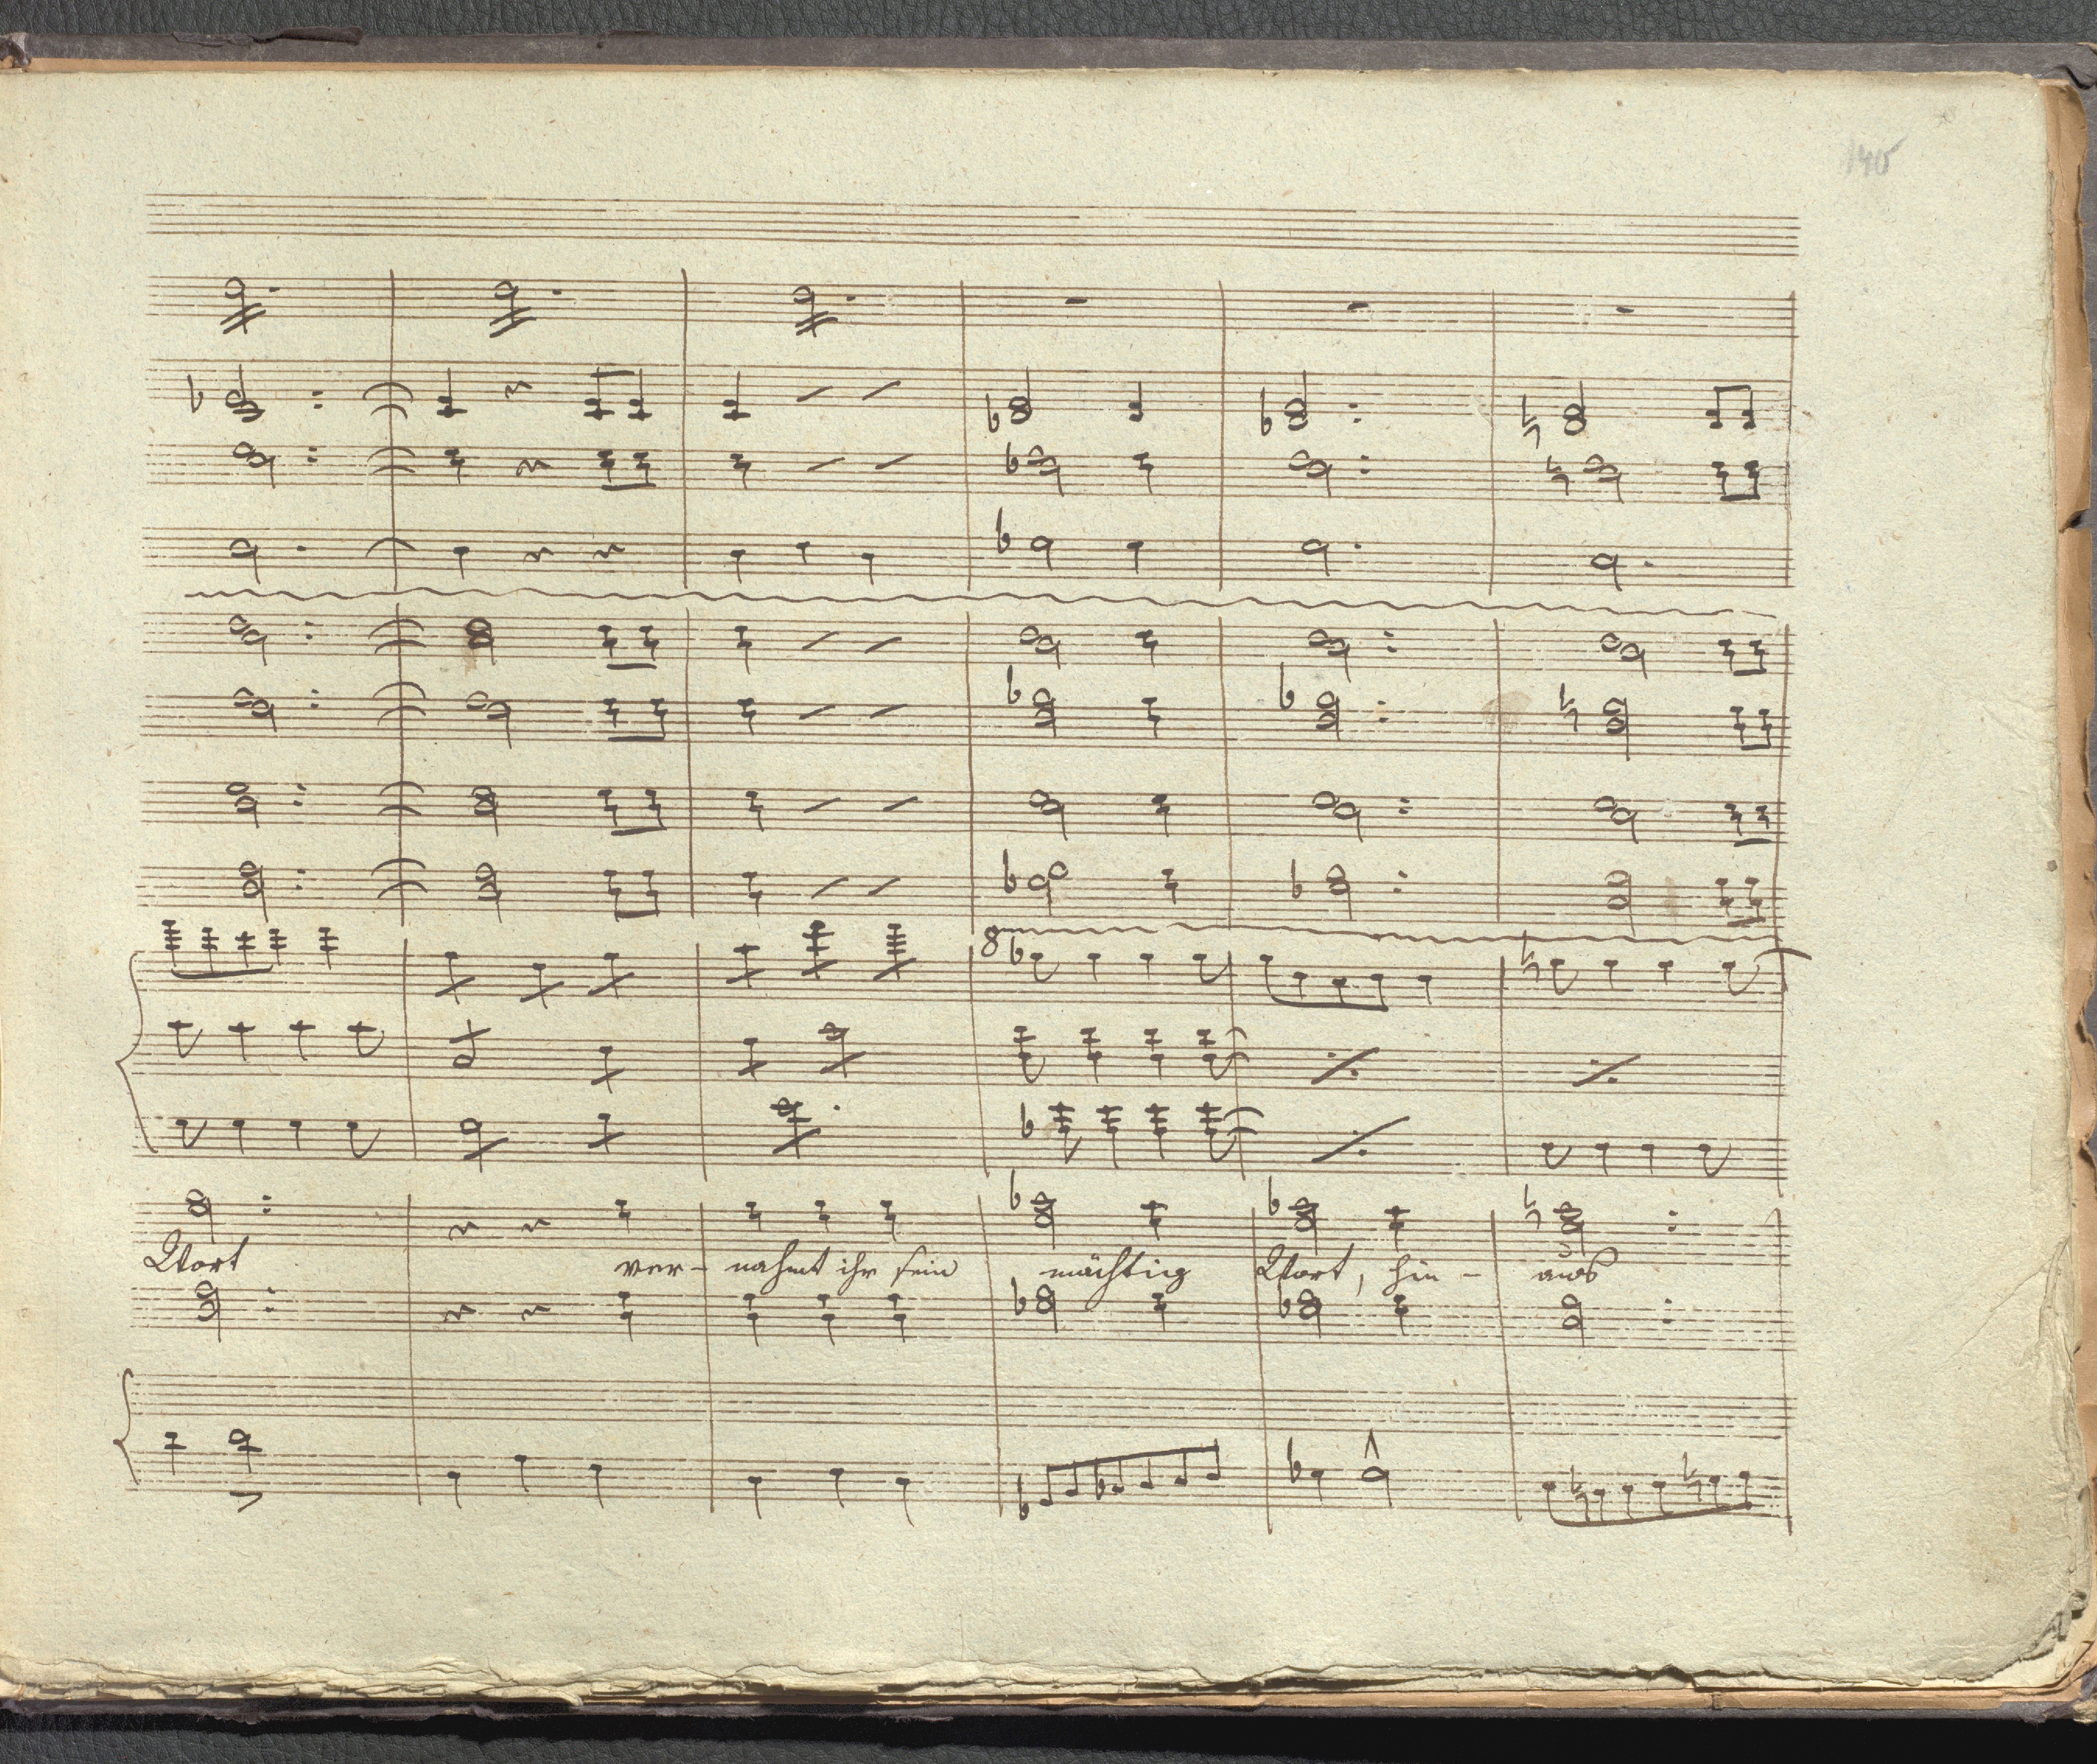 140
8
Wort ver- nahmt ihr sein mächtig Wort, hin- aus